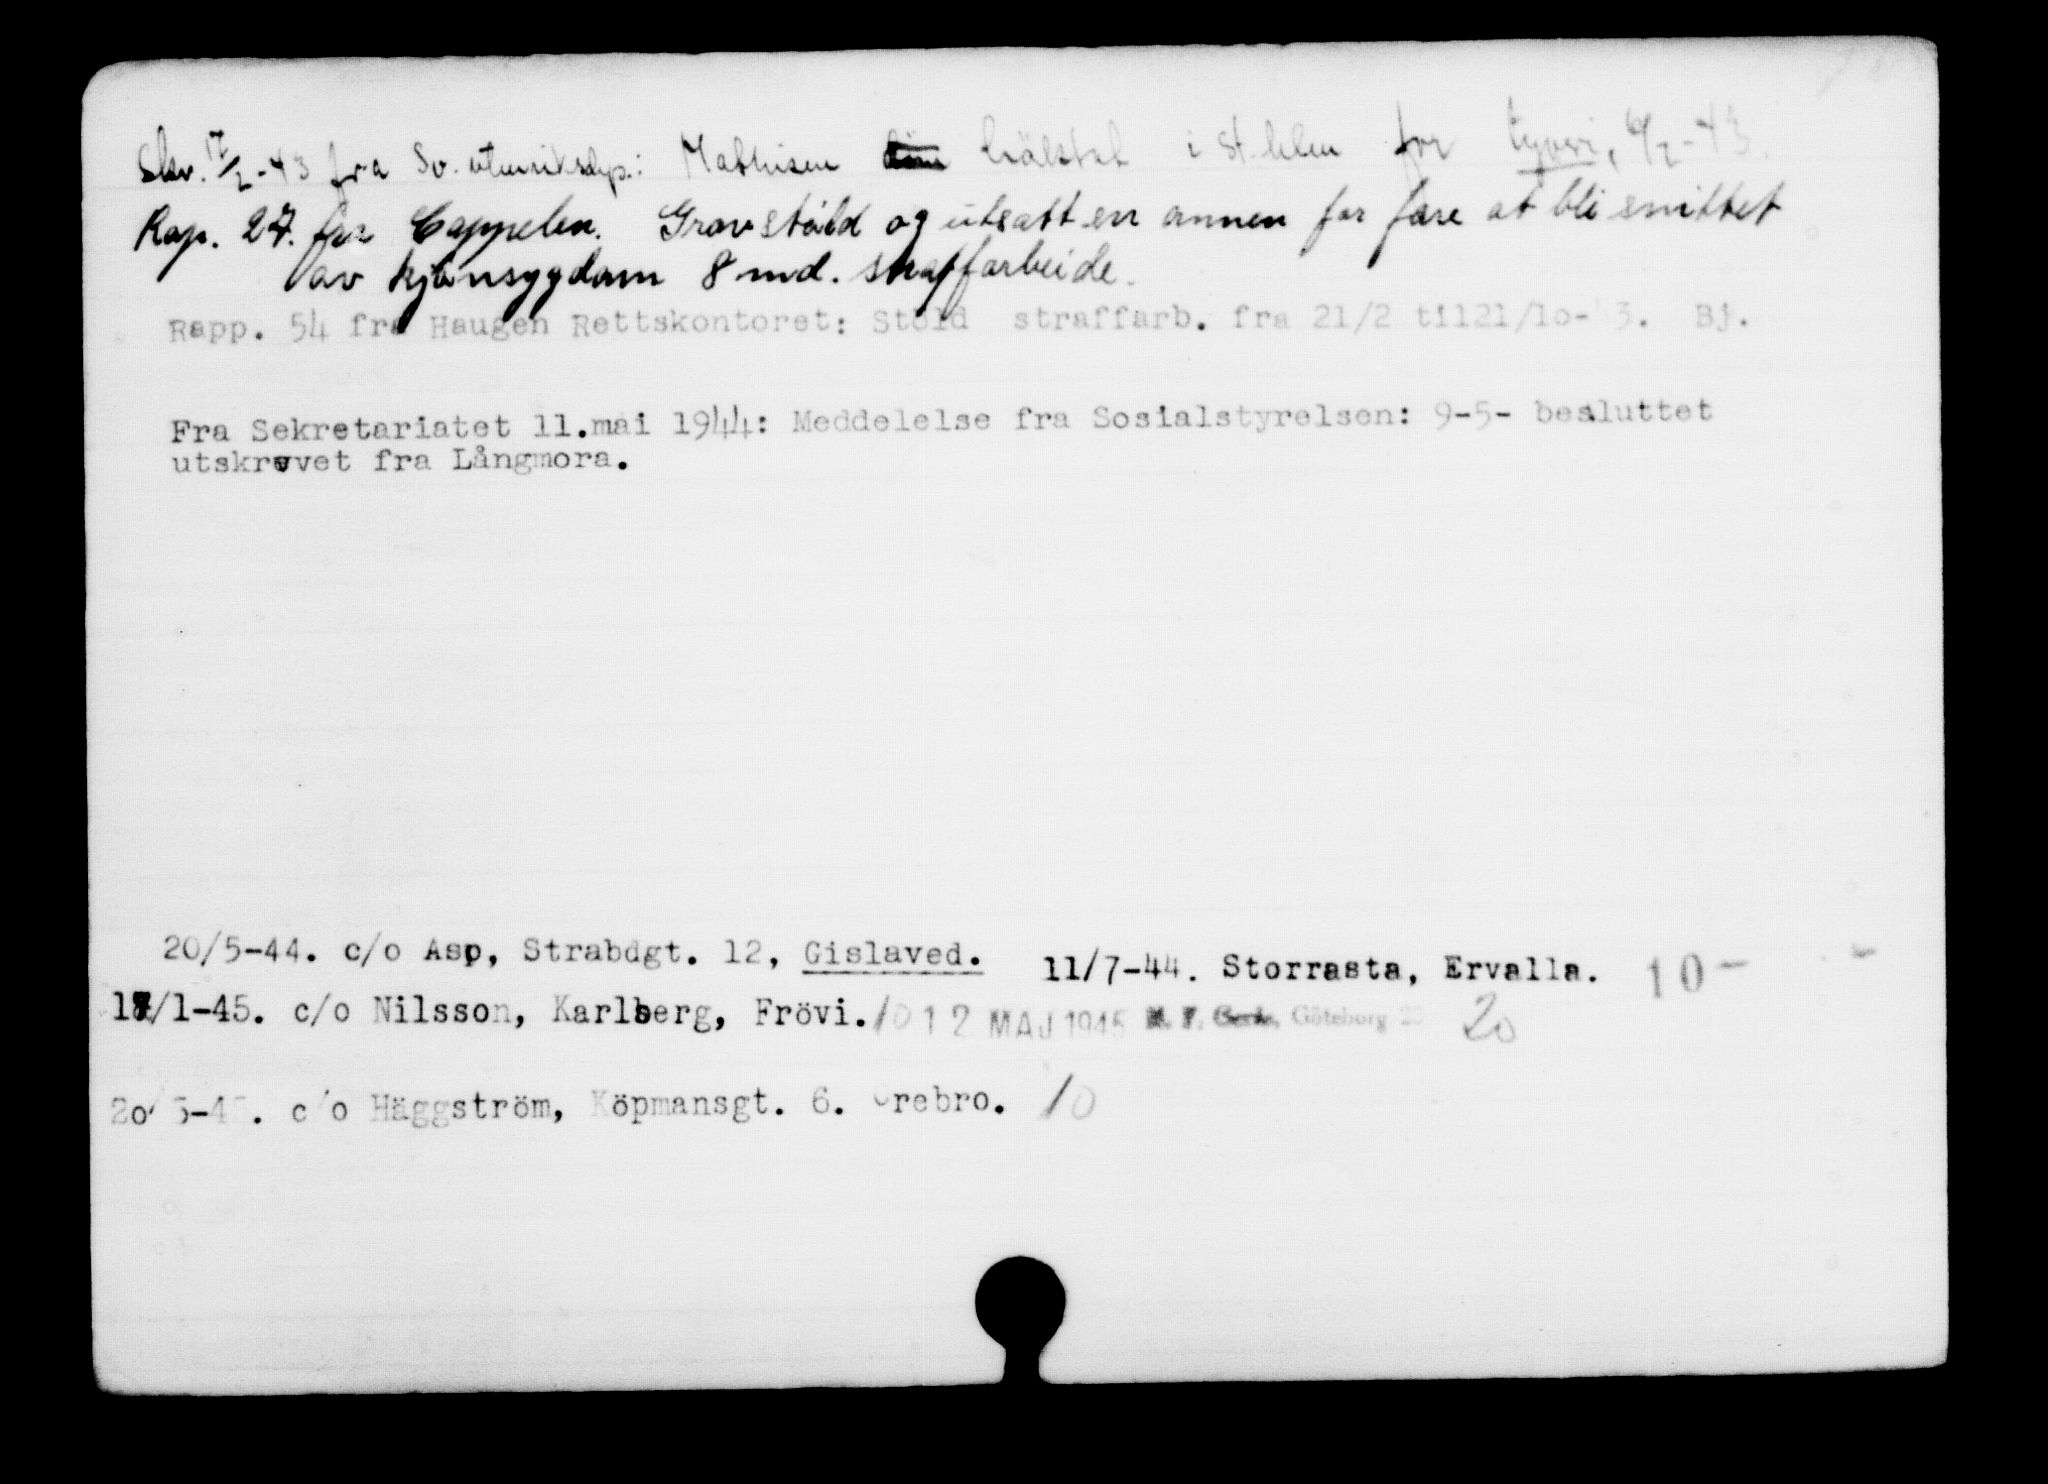 Skr. 17/2-43 fra Sv. utenriksdep.: Mathisen häktet i St.holm for tyveri, 6/2-43.
Rap. 27. fra Cappelen. Grov stöld og utsatt en annen for fare at bli smittet
av kjönsygdom 8 md. straffarbeide.
Rapp. 54 fra Haugen Rettskontoret: Stöld straffarb. fra 21/2 til21/lo- 3. Bj.
Fra Sekretariatet 11.mai 1944: Meddelelse fra Sosialstyrelsen: 9-5- besluttet
utskrevet fra Långmora.
20/5-44. c/o Asp, Strabdgt. 12, Gislaved. 11/7-44. Storrasta, Ervalla. 10-
/1-45. c/o Nilsson, Karlberg, Frövi. 10 12 MAJ 1945 Göteborg 20
2o/5-45. c/o Häggström, Köpmansgt. 6. Örebro. 10